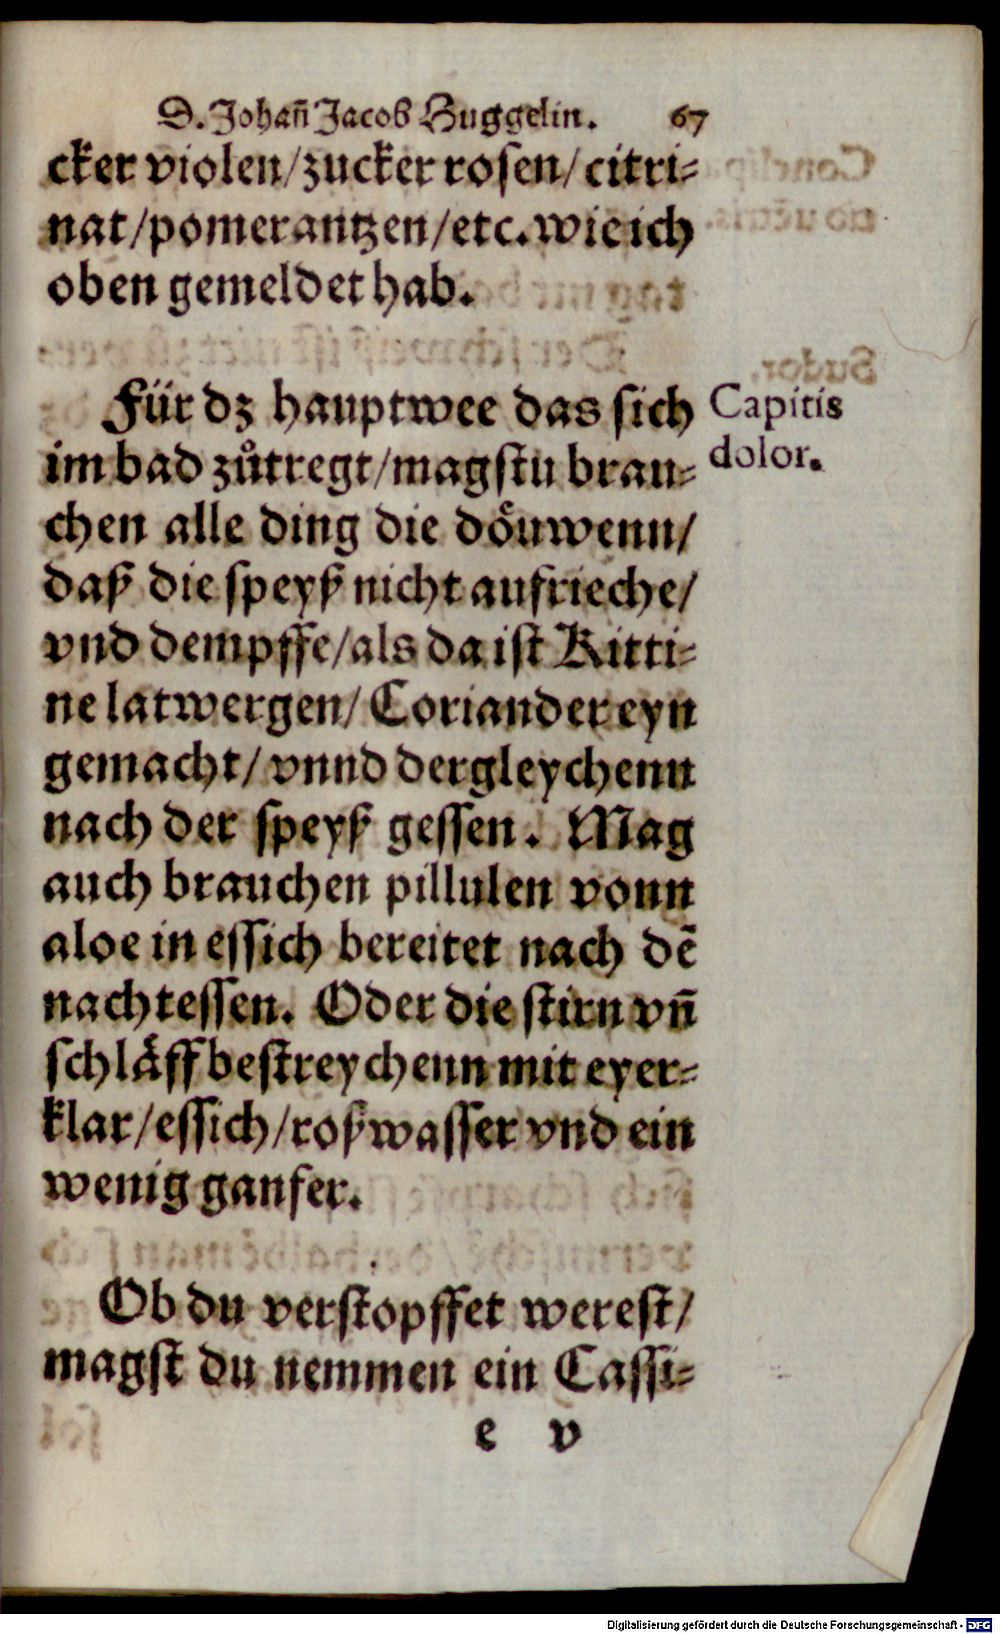 D. Johan̄ Jacob Huggelin. 67
cker violen/zucker rosen/citri⸗
nat/pomerantzen/etc. wie ich
oben gemeldet hab.
Für dz hauptwee das sich
im bad zůtregt/magstu brau⸗
chen alle ding die döuwenn/
daß die speyß nicht aufrieche/
vnd dempffe/als da ist Kitti⸗
ne latwergen/Coriander eyn
gemacht/vnnd dergleychenn
nach der speyß gessen. Mag
auch brauchen pillulen vonn
aloe in essich bereitet nach dē
nachtessen. Oder die stirn vn̄
schläff bestreychenn mit eyer⸗
klar/essich/roßwasser vnd ein
wenig ganfer.
Ob du verstopffet werest/
magst du nemmen ein Cassi⸗
e v
Capitis
dolor.
Digitalisierung gefördert durch die Deutsche Forschungsgemeinschaft - DFG